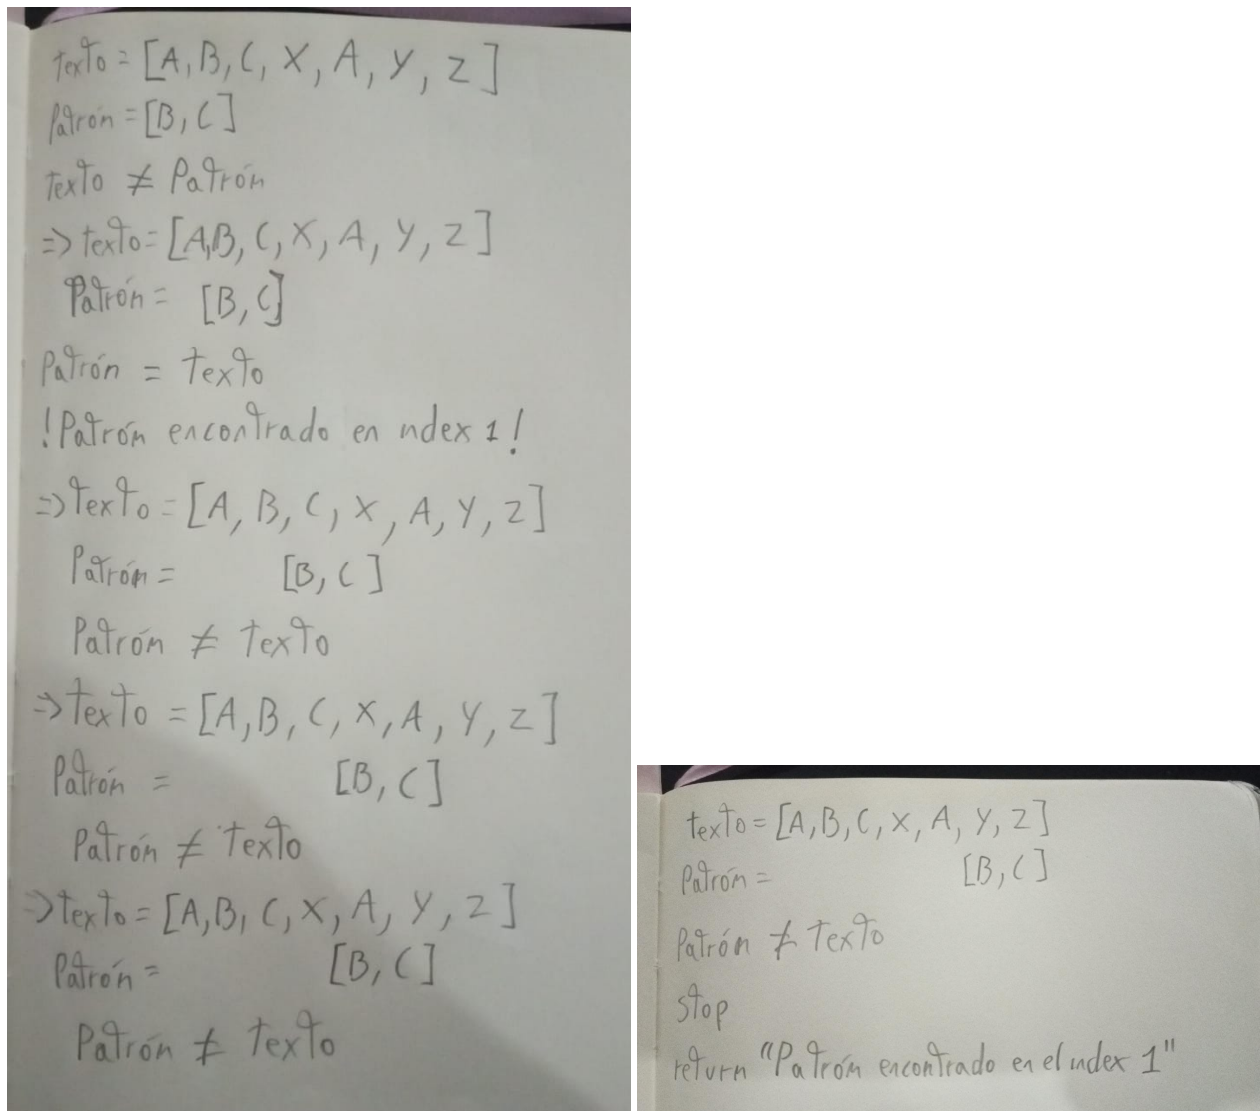 texto = [A, B, C, X, A, Y, Z]
Patrón = [B, C]
texto ≠ Patrón
=> texto = [A,B, C, X, A, Y, Z]
Patrón = [B, C]
Patrón = texto
!Patrón encontrado en ndex 1!
=> texto = [A, B, C, X, A, Y, Z]
Patrón = [B, C]
Patrón ≠ texto
=> texto = [A, B, C, X, A, Y, Z]
Patrón = [B, C]
Patrón ≠ texto
=> texto = [A, B, C, X, A, Y, Z]
Patrón = [B, C]
Patrón ≠ texto
texto = [A, B, C, X, A, Y, Z]
Patrón = [B, C]
Patrón ≠ texto
stop
return "Patrón encontrado en el index 1"